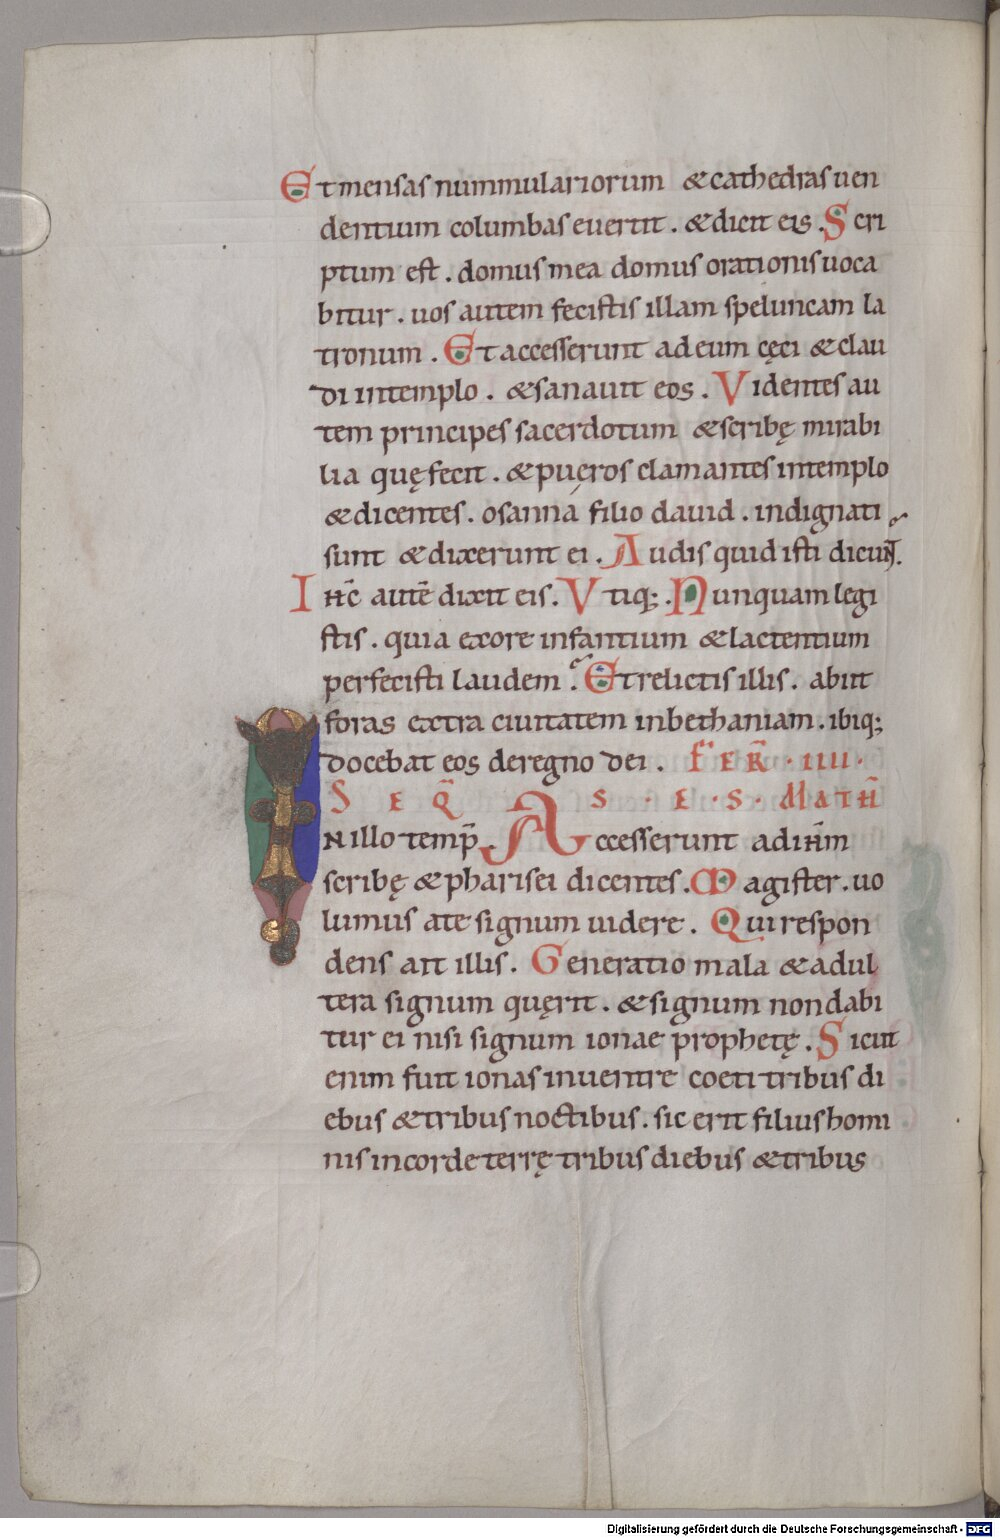 Et mensas nummulariorum & cathedras uen
dentium columbas euertit . & dicit eis . Scri
ptum est . domus mea domus orationis uoca
bitur . uos autem fecistis illam speluncam la
tronum . Et accesserunt ad eum cęci & clau
di in templo . & sanauit eos . Videntes au
tem principes sacerdotum & scribę mirabi
lia quę fecit . & pueros clamantes in templo
& dicentes . osanna filio dauid . indignati
sunt & dixerunt ei . Audis quid isti dicunt .
Ihc̄ autē dixit eis . Vtiq; . Nunquam legi
stis . quia ex ore infantium & lactentium
perfecisti laudem . Et relictis illis . abiit
foras extra ciuitatem in bethaniam . ibiq;
docebat eos de regno dei . FER̄ · IIII ·
SEQ̄ S · E · S · MATH̄
IN illo temp̄ . Accesserunt ad ihm̄
scribę & pharisei dicentes . Magister . uo
lumus a te signum uidere . Qui respon
dens ait illis . Generatio mala & adul
tera signum quęrit . & signum non dabi
tur ei nisi signum ionae prophetę . Sicut
enim fuit ionas in uentre coeti tribus di
ebus & tribus noctibus . sic erit filius homi
nis in corde terrę tribus diebus & tribus
Digitalisierung gefördert durch die Deutsche Forschungsgemeinschaft - DFG